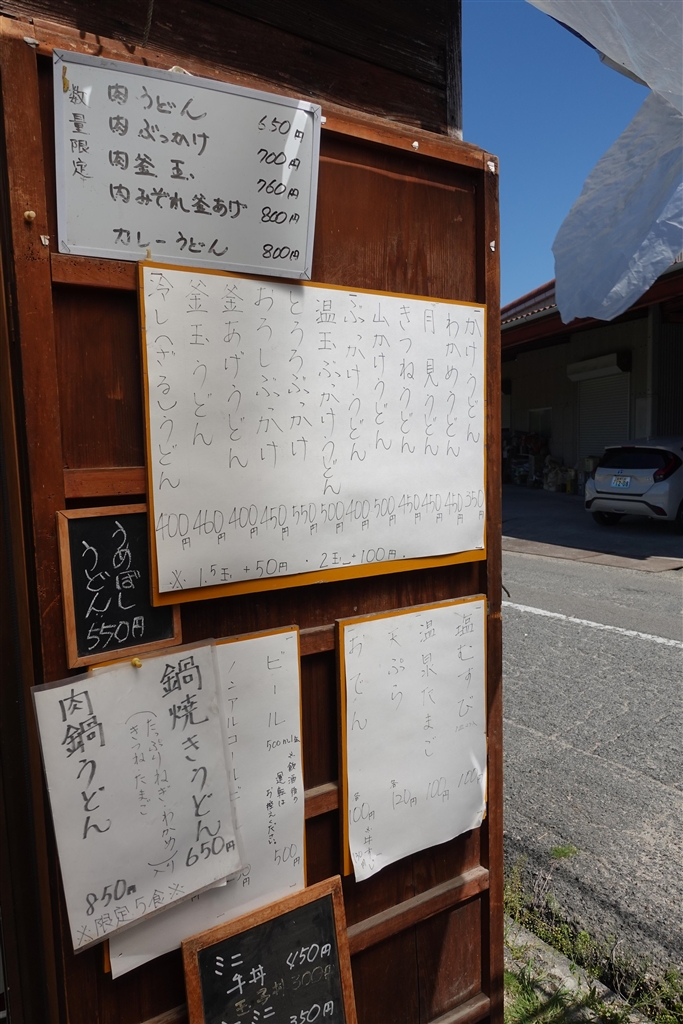 数量限定
肉うどん 650円
肉ぶっかけ 700円
肉釜玉 760円
肉みぞれ釜あげ 800円
カレーうどん 800円
かけうどん 350円
わかめうどん 450円
月見うどん 450円
きつねうどん 450円
山かけうどん 500円
ぶっかけうどん 400円
温玉ぶっかけうどん 500円
とろろぶっかけ 550円
おろしぶっかけ 450円
釜あげうどん 400円
釜玉うどん 460円
冷し(ざる)うどん 400円
※ 1.5玉 +50円 ・ 2玉 +100円
うめぼし
うどん
550円
鍋焼きうどん 650円
(たっぷりねぎ・わかめ
きつね・たまご)入り
肉鍋うどん 850円
※限定5食※
ビール 500ml缶 500円
運転は
お控えください。
ノンアルコールビ
塩むすび 100
温泉たまご 100円
天ぷら 各120円
おでん 各100円
ミニ
牛丼 450円
玉子丼 300円
ミニ 350円